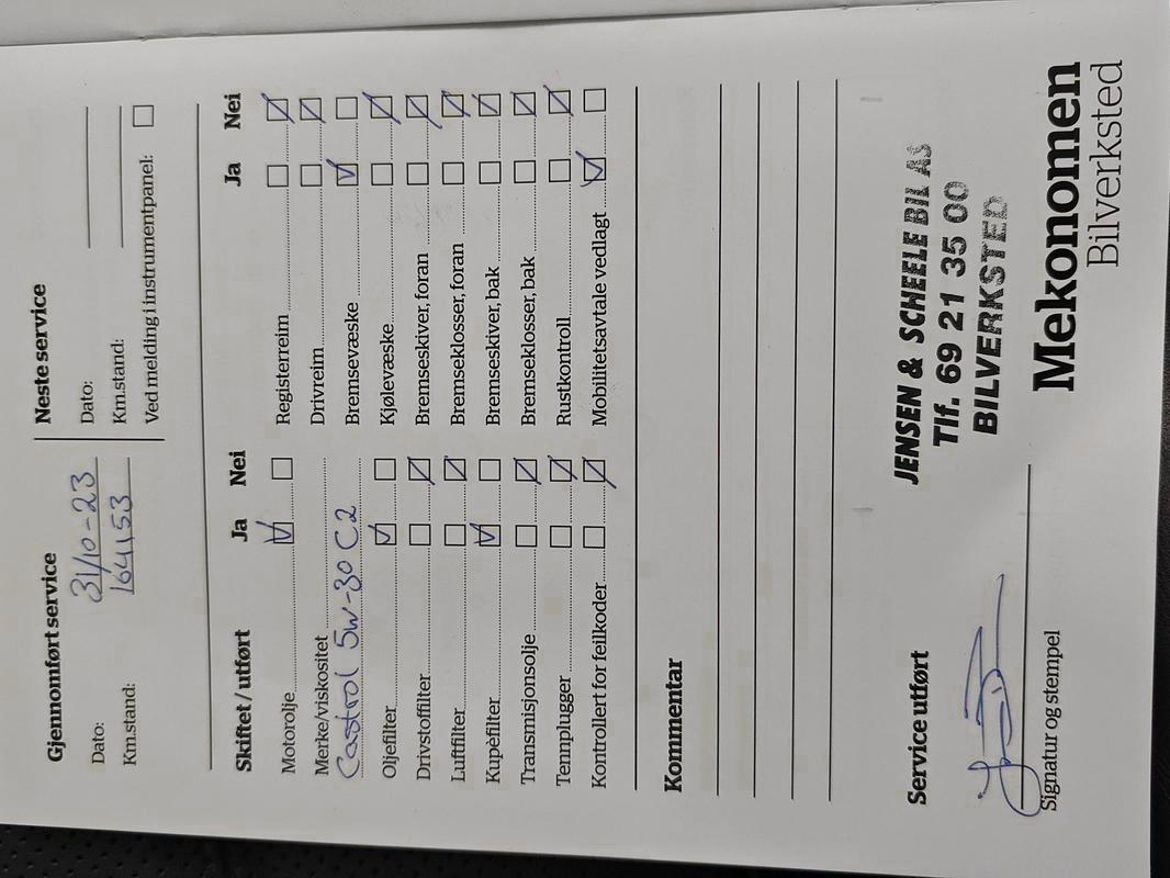 Gjennomført service
Dato: 31/10-23
Km.stand: 164153
Neste service
Dato:
Km.stand:
Ved melding i instrumentpanel:
Skiftet / utført Ja Nei
Motorolje
Merke/viskositet
Castrol 5w-30 C2
Oljefilter
Drivstoffilter
Luftfilter
Kupèfilter
Transmisjonsolje
Tennplugger
Kontrollert for feilkoder
Ja Nei
Registerreim
Drivreim
Bremsevæske
Kjølevæske
Bremseskiver, foran
Bremseklosser, foran
Bremseskiver, bak
Bremseklosser, bak
Rustkontroll
Mobilitetsavtale vedlagt
Kommentar
Service utført
Signatur og stempel
JENSEN & SCHEELE BIL AS
Tlf. 69 21 35 00
BILVERKSTED
Mekonomen
Bilverksted